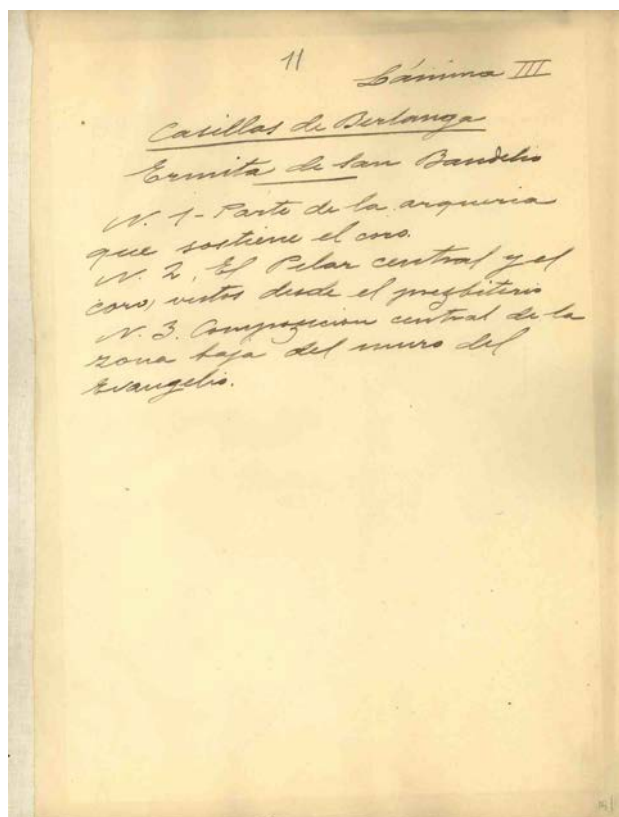 11
Lámina III
Casillas de Berlanga
Ermita de San Baudelio
N. 1 - Parte de la arqueria
que sostiene el coro.
N. 2. El Pilar central y el
coro, vistos desde el presbiterio
N. 3. Composicion central de la
zona baja del muro del
Evangelio.